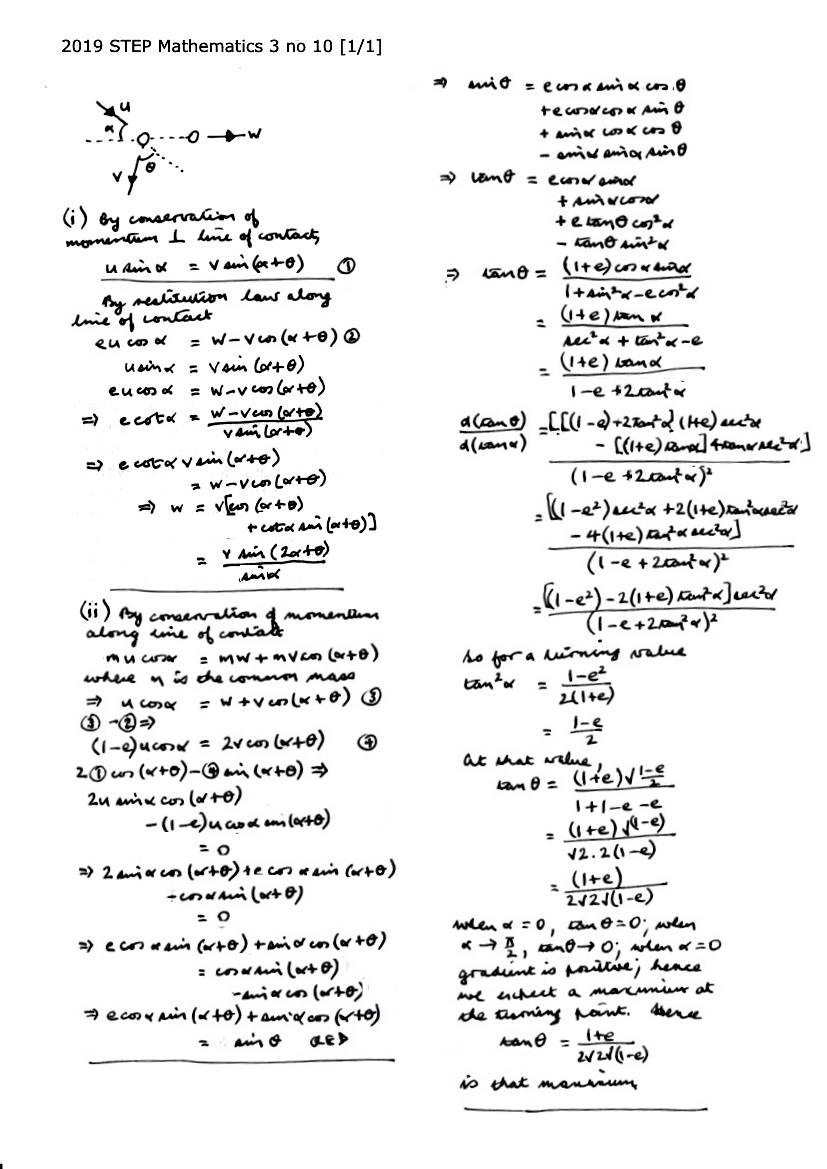 2019 STEP Mathematics 3 no 10 [1/1]
u
α
w
v
θ
(i) By conservation of
momentum ⊥ line of contact,
u sin α = v sin (α+θ) ①
By restitution law along
line of contact
eu cos α = w - v cos (α+θ) ②
u sin α = v sin (α+θ)
eu cos α = w - v cos (α+θ)
⇒ e cot α = w - v cos (α+θ) / v sin (α+θ)
⇒ e cot α v sin (α+θ)
= w - v cos (α+θ)
⇒ w = v[cos (α+θ)
+ e cot α sin (α+θ)]
= v sin (2α+θ) / sin α
(ii) By conservation of momentum
along line of contact
mu cos α = mw + mv cos (α+θ)
where m is the common mass
⇒ u cos α = w + v cos (α+θ) ③
③ - ② ⇒
(1-e)u cos α = 2v cos (α+θ) ④
2① cos (α+θ) - ④ sin (α+θ) ⇒
2u sin α cos (α+θ)
- (1-e)u cos α sin (α+θ)
= 0
⇒ 2 sin α cos (α+θ) + e cos α sin (α+θ)
- cos α sin (α+θ)
= 0
⇒ e cos α sin (α+θ) + sin α cos (α+θ)
= cos α sin (α+θ)
- sin α cos (α+θ)
⇒ e cos α sin (α+θ) + sin α cos (α+θ)
= sin θ QED
⇒ sin θ = e cos α sin α cos θ
+ e cos α cos α sin θ
+ sin α cos α cos θ
- sin α sin α sin θ
⇒ tan θ = e cos α sin α
+ sin α cos α
+ e tan θ cos² α
- tan θ sin² α
⇒ tan θ = (1+e) cos α sin α / 1 + sin² α - e cos² α
= (1+e) tan α / sec² α + tan² α - e
= (1+e) tan α / 1 - e + 2 tan² α
d(tan θ) / d(tan α) = [[(1-e) + 2 tan² α] (1+e) sec² α
- [(1+e) tan α] 4 tan α sec² α]
/ (1 - e + 2 tan² α)²
= [(1-e²) sec² α + 2(1+e) tan² α sec² α
- 4(1+e) tan² α sec² α]
/ (1 - e + 2 tan² α)²
= [(1-e²) - 2(1+e) tan² α] sec² α / (1 - e + 2 tan² α)²
So for a turning value
tan² α = 1-e² / 2(1+e)
= 1-e / 2
At that value,
tan θ = (1+e) √1-e/2 / 1+1-e-e
= (1+e) √(1-e) / √2.2(1-e)
= (1+e) / 2√2√(1-e)
when α = 0, tan θ = 0; when
α → π/2, tan θ → 0; when α = 0
gradient is positive; hence
we expect a maximum at
the turning point. Hence
tan θ = 1+e / 2√2√(1-e)
is that maximum